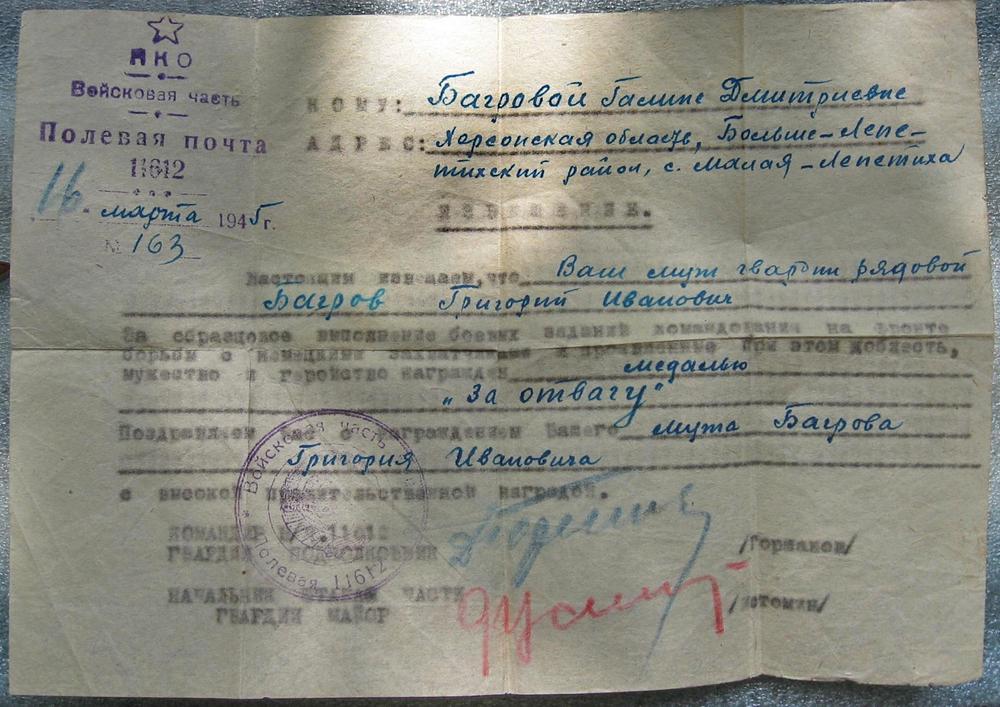 НКО
Войсковая часть
Полевая почта
11612
16 марта 1945 г.
№ 163
КОМУ: Багровой Галине Дмитриевне
АДРЕС: Херсонская область, Больше-Лепе-
тихский район, с. Малая-Лепетиха
ИЗВЕЩЕНИЕ.
Настоящим извещаем, что Ваш муж гвардии рядовой
Багров Григорий Иванович
За образцовое выполнение боевых заданий командования на фронте
борьбы с немецкими захватчиками и проявленные при этом доблесть,
мужество и геройство награжден медалью
"За отвагу"
Поздравляем Вас с награждением Вашего мужа Багрова
Григория Ивановича
с высокой правительственной наградой.
КОМАНДИР 11612
ГВАРДИИ ПОДПОЛКОВНИК /Горшаков/
НАЧАЛЬНИК ШТАБА ЧАСТИ
ГВАРДИИ МАЙОР /Истомин/
Войсковая часть
Полевая 11612